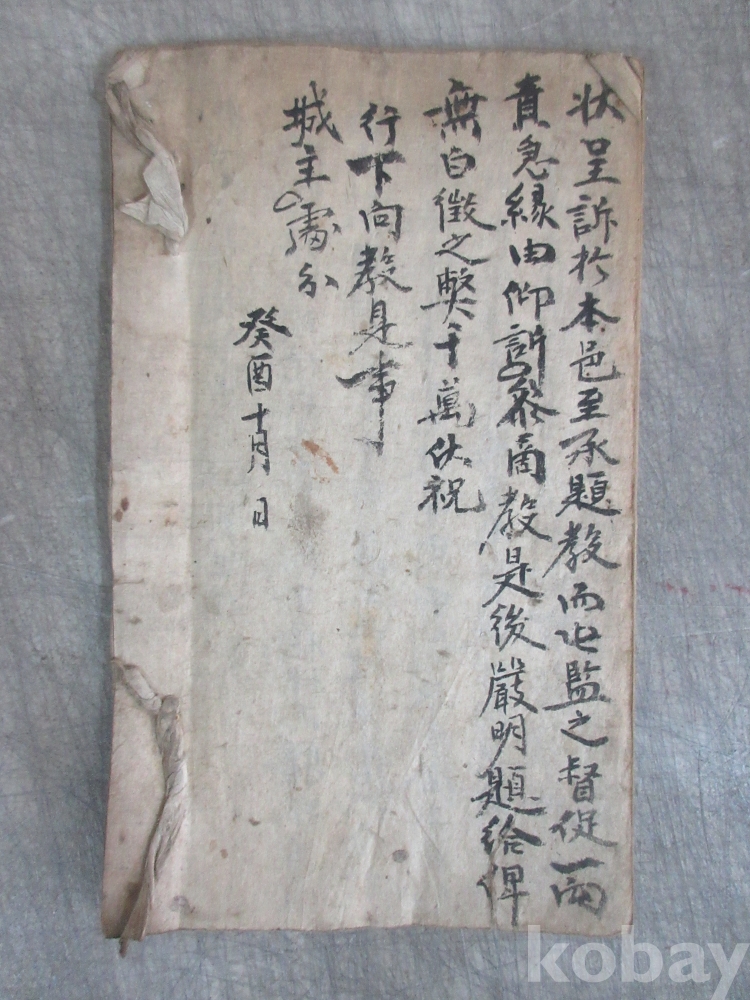 状呈訴於本邑至承題教而屯監之督促一向
責急緣由仰訴參商教是後嚴明題給俾
無白徵之弊千萬伏祝
行下向教是事
城主處分
癸酉十月 日
kobay